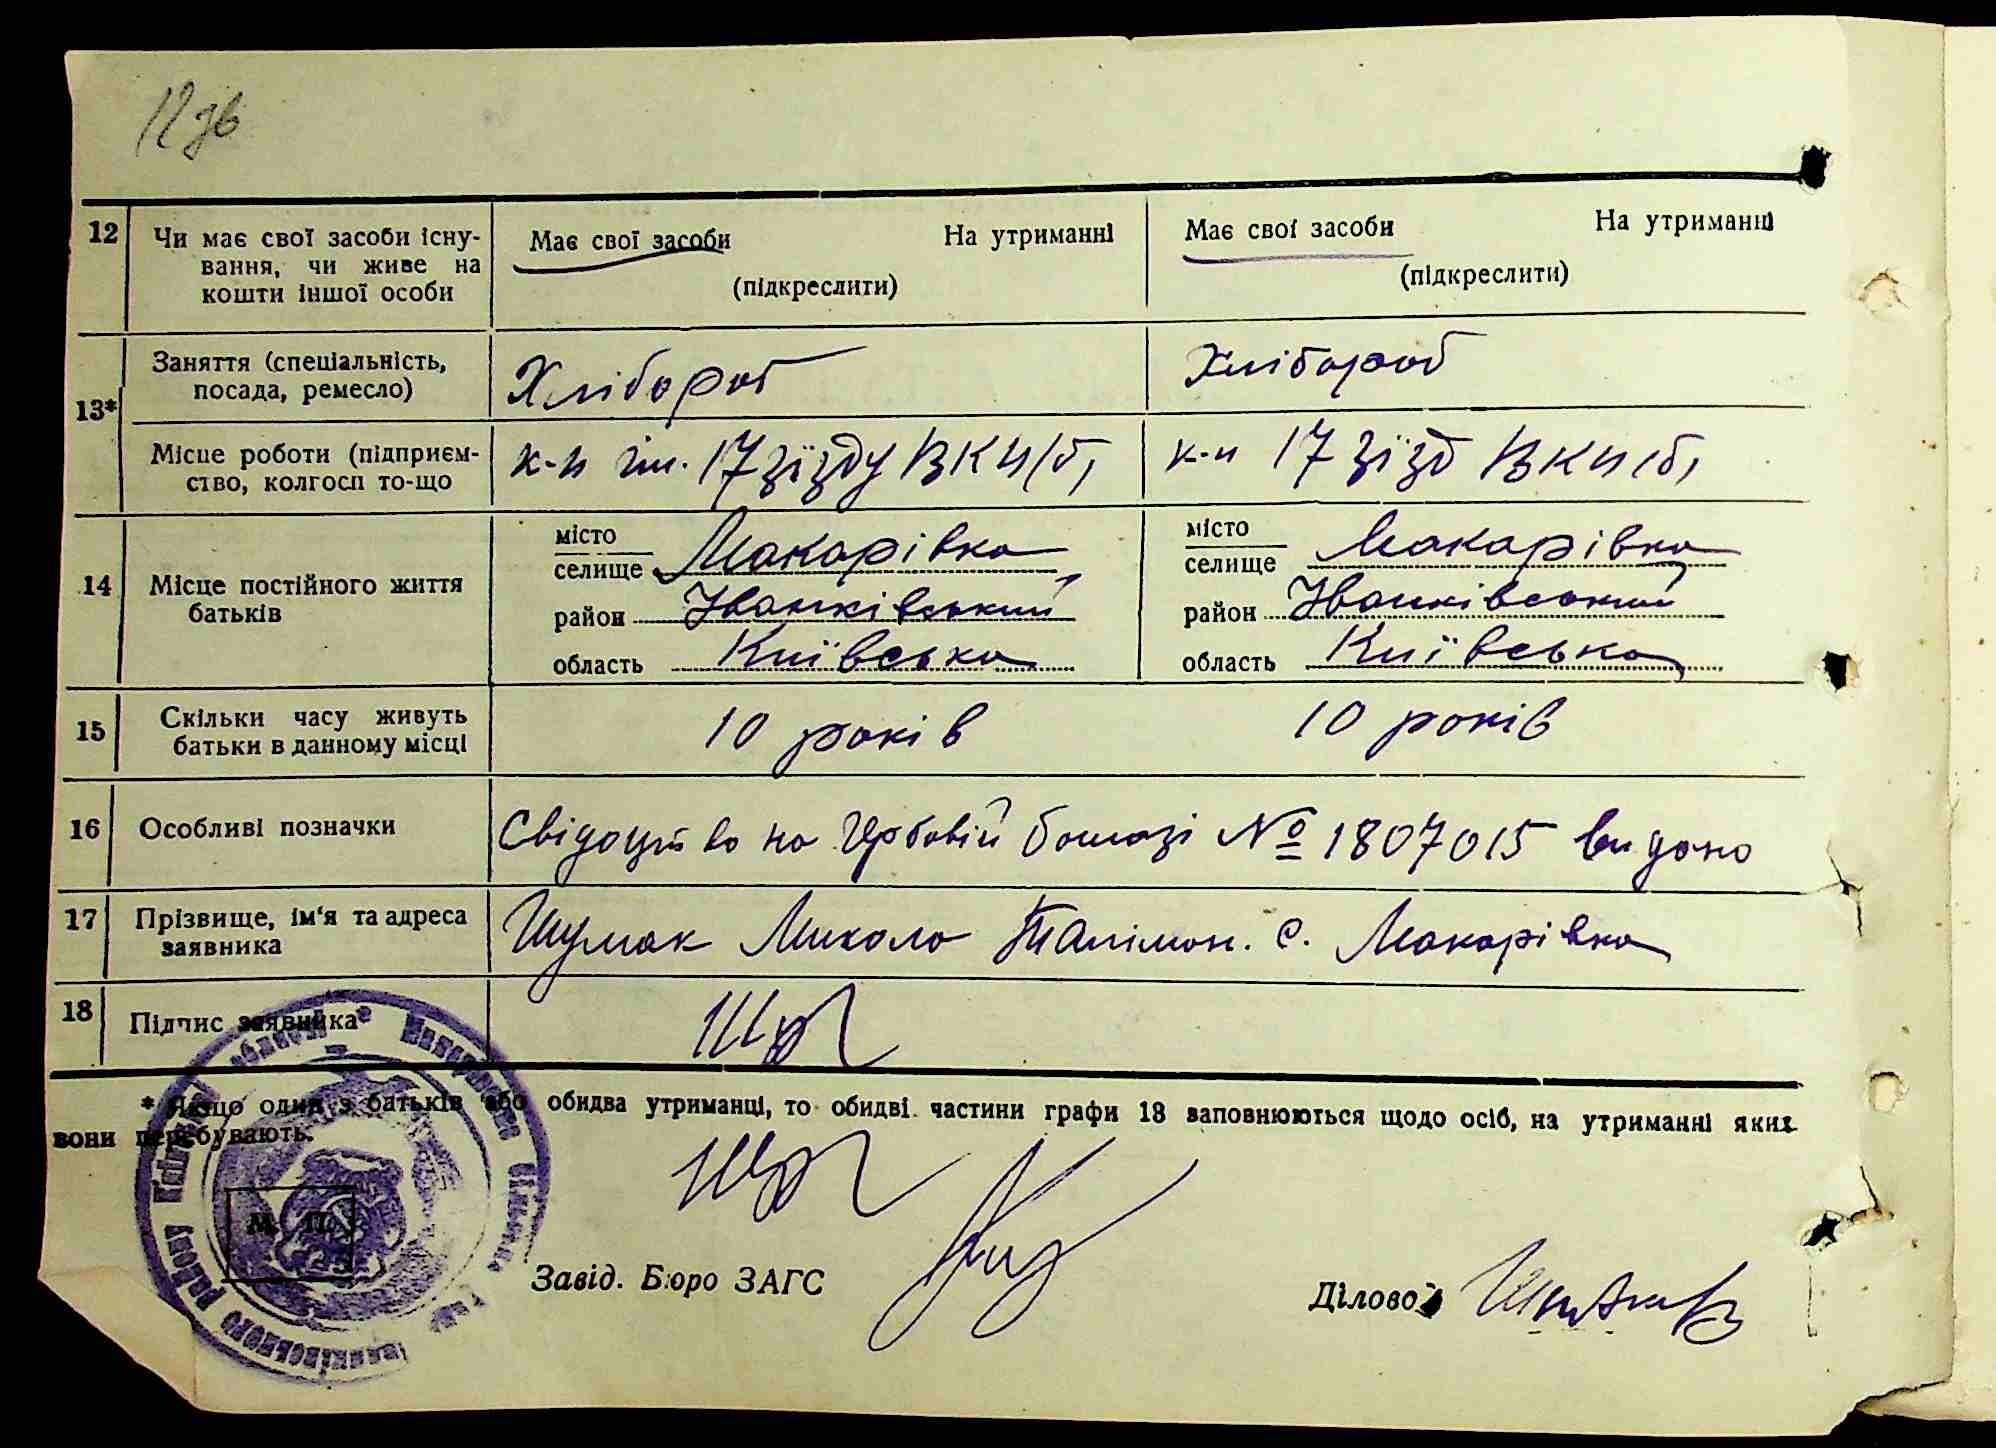 12 зв
12 Чи має свої засоби існу- Має свої засоби На утриманні Має свої засоби На утриманні
вання, чи живе на (підкреслити) (підкреслити)
кошти іншої особи
13* Заняття (спеціальність, Хлібороб Хлібороб
посада, ремесло)
Місце роботи (підприєм- к-п ім. 17 зїзду ВКП(б) к-п 17 зїзд ВКП(б)
ство, колгосп то-що
14 Місце постійного життя батьків
місто селище Макарівка місто селище Макарівка
район Іванківський район Іванківський
область Київська область Київська
15 Скільки часу живуть 10 років 10 років
батьки в данному місці
16 Особливі позначки Свідоцтво на гербовій бомазі № 1807015 видано
17 Прізвище, ім'я та адреса Шумак Микола с. Макарівка
заявника
18 Підпис заявника
* Якщо один з батьків або обидва утриманці, то обидві частини графи 13 заповнюються щодо осіб, на утриманні яких
вони перебувають.
М. П.
Завід. Бюро ЗАГС Діловод